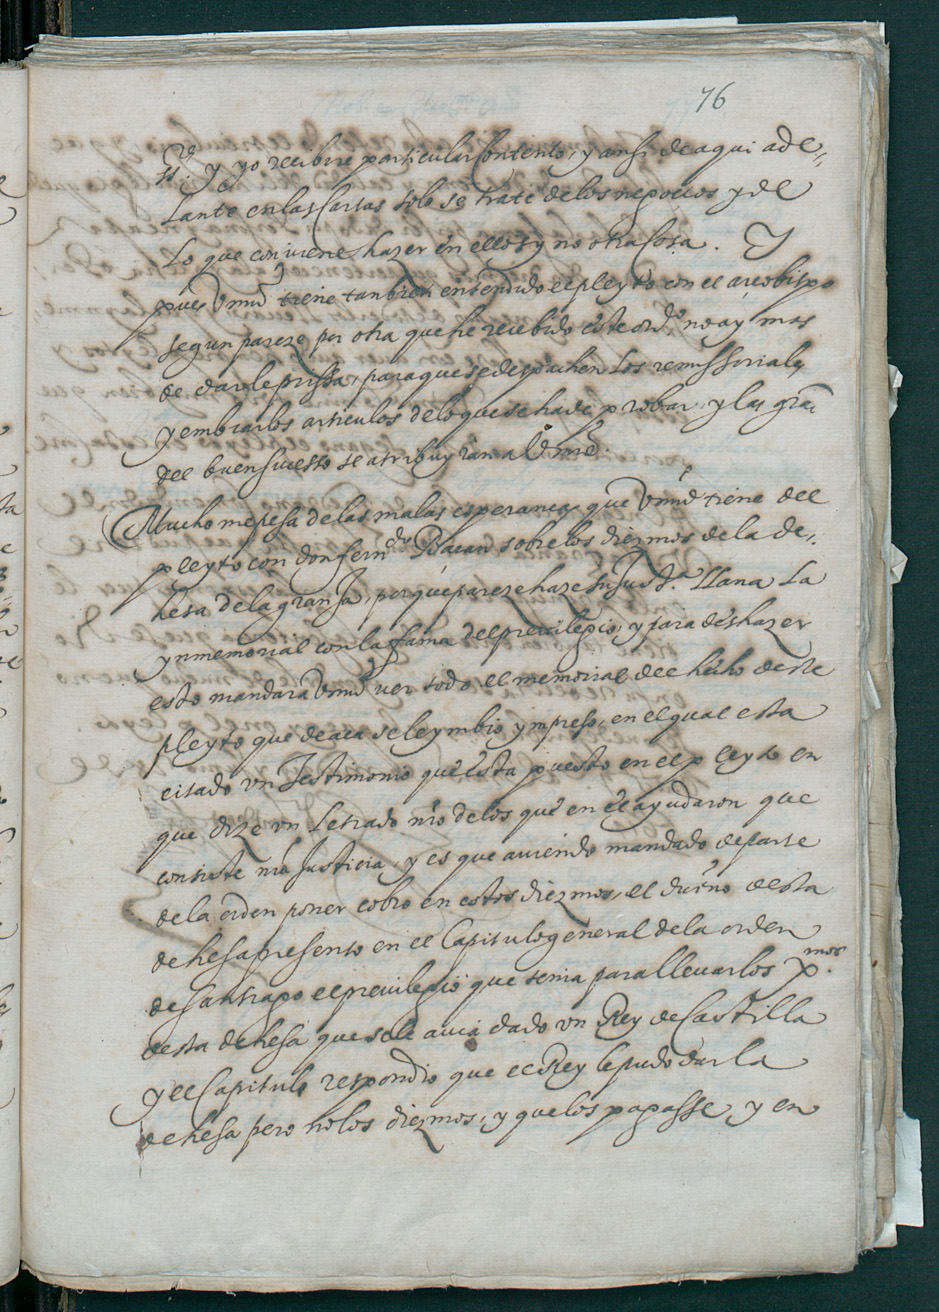 76
y yo recibire particular Contento, y ansi de aqui ade,,
Lante en las Cartas solo se trate de los negocios y de
Lo que conviene hazer en ellos y no otra Cosa. Y
pues Vmd tiene tanbien entendido el pleyto con el arcobispo
segun pareze por otra que he recebido este ord.º no ay mas
de darle prissa, para que se despachen Los remissoriales
y embiar los articulos de lo que se ha de probar, y las gras
del buen suçesso se atribuyran a Vmd.
Mucho me pesa de las malas esperanças que Vmd tiene del
pleyto con don ferndo Bacan sobre los diezmos de la de,,
hesa de la granja, porque pareze haze su Just.ª llana La
ynmemorial con la fama del previlegio, y para deshazer
esto mandara Vmd ver todo el memorial del hecho deste
pleyto que de aca se le ymbio ympreso, en el qual esta
citado vn Testimonio que esta puesto en el pleyto en
que dize vn Letrado nro de los que en el ayudaron que
consiste nra Justicia, y es que aviendo mandado de parte
de la orden poner cobro en estos diezmos, el dueño desta
dehesa presento en el Capitulo general de la orden
de Santiago el previlegio que tenia para llevar los Xmos
desta dehesa que se le avia dado vn Rey de Castilla
y el Capitulo respondio que el Rey le pudo dar la
dehesa pero no los diezmos, y que los pagasse, y en